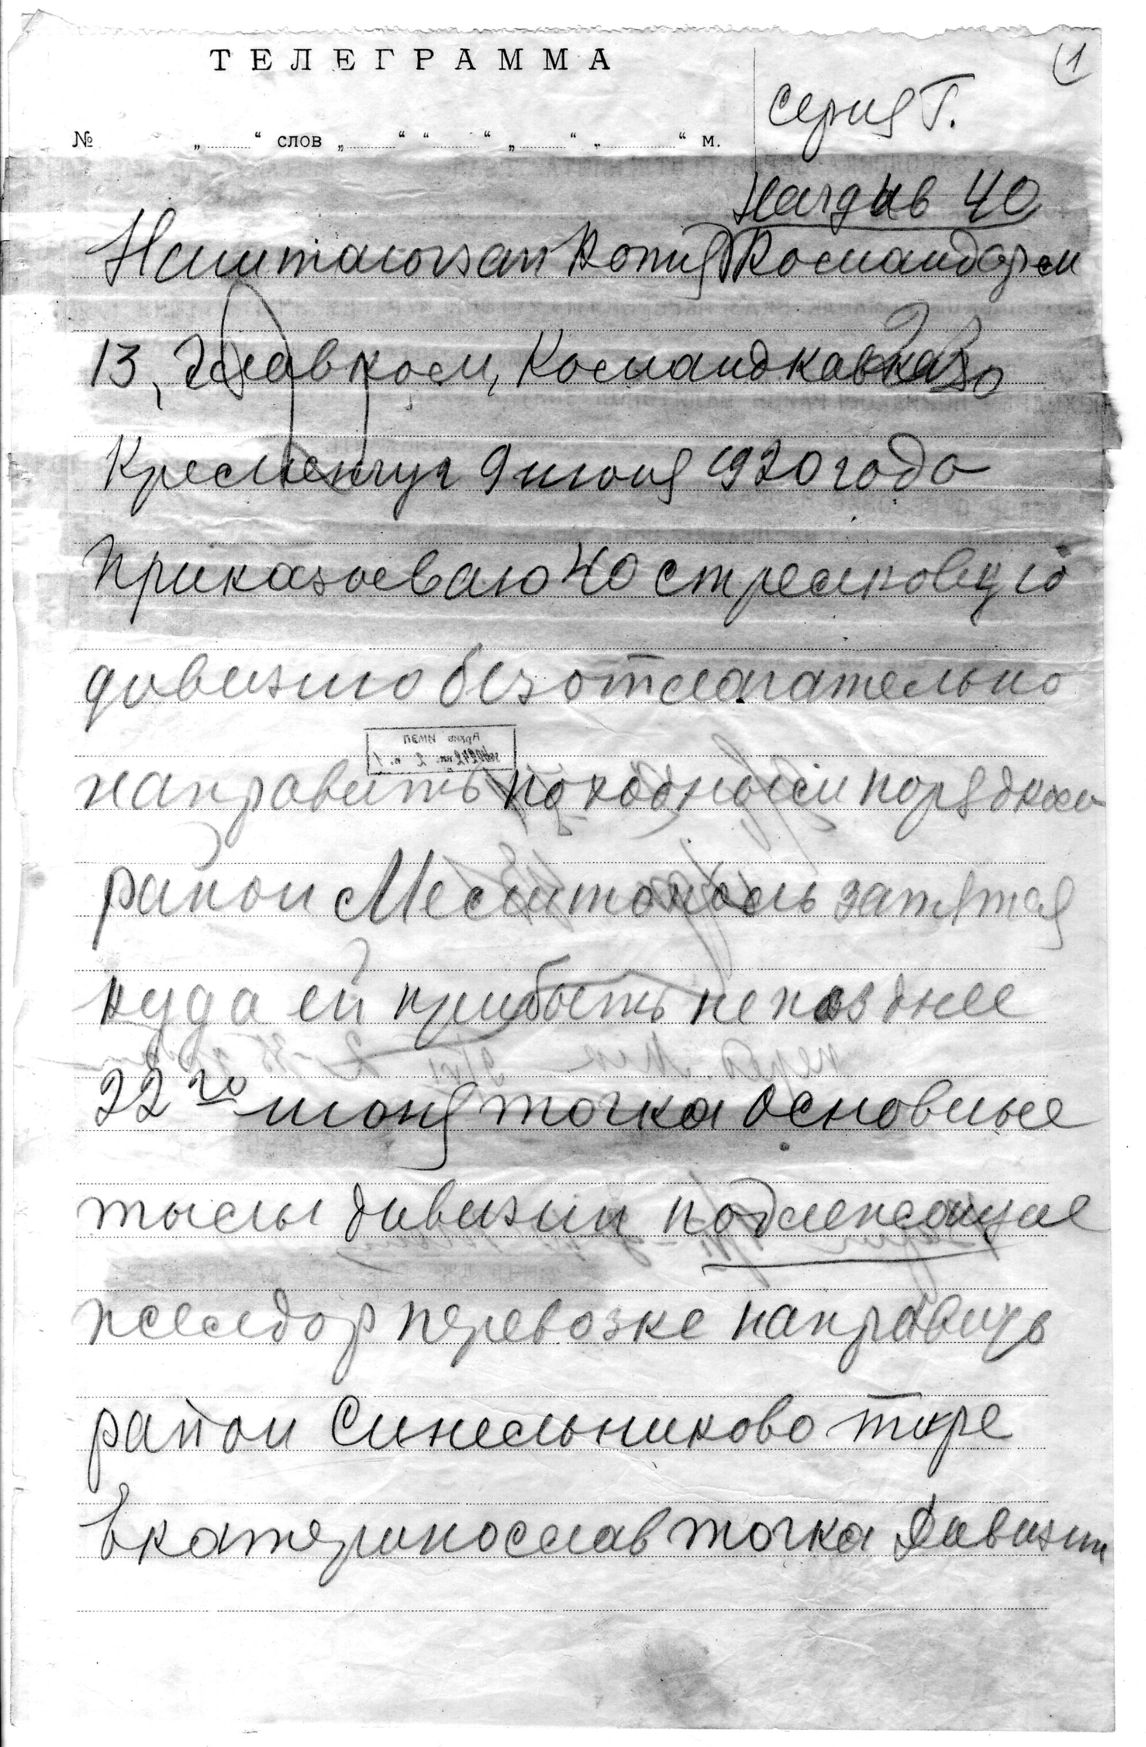 (1
ТЕЛЕГРАММА
серия Г.
№ „ “ слов „ “ “ “ „ “ „ “ м.
Начдив 40
Наштаюгзап Копия Командарм
13, Главком, Командкавказ
Кременчуг 9 июня 1920 года
Приказываю 40 стрелковую
дивизию безотлагательно
направить походным порядком
район Мелитополь запятая
куда ей прибыть не позднее
22 го июня точка Основные
тылы дивизии подлежащие
желдор перевозке направить
район Синельниково тире
Екатеринослав точка Дивизии